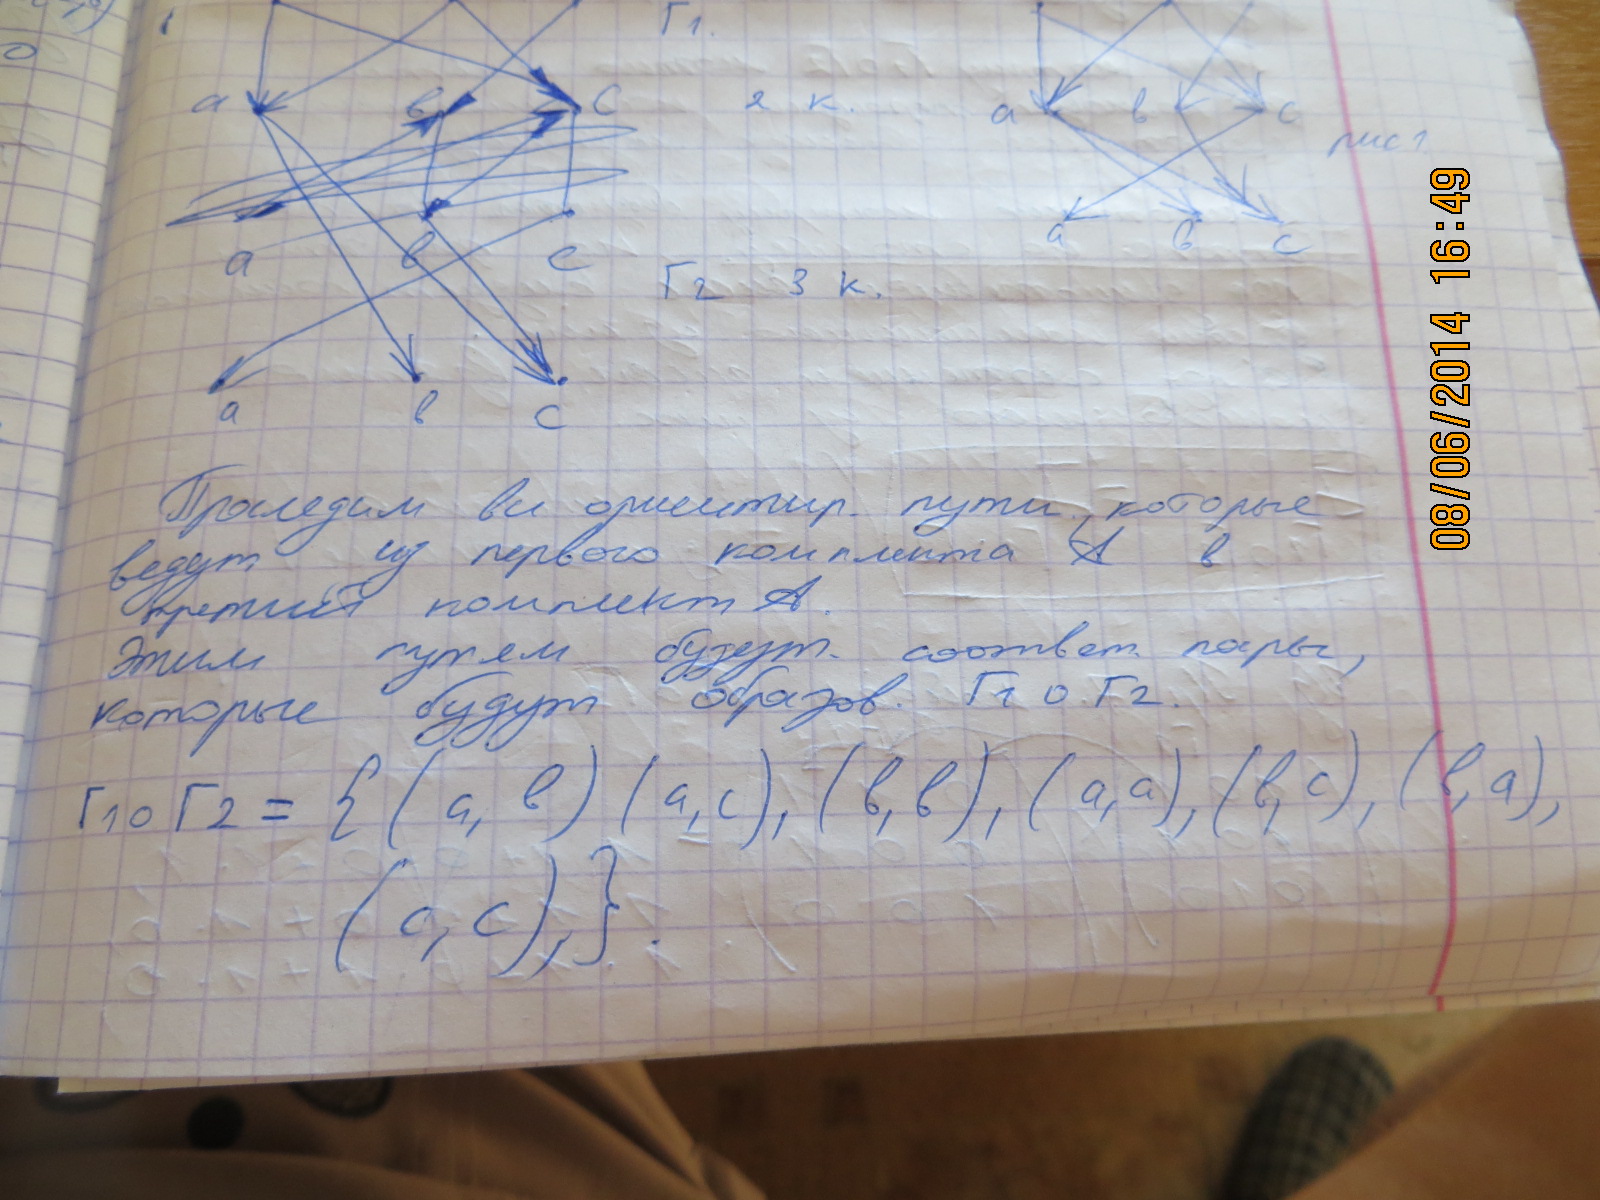 Г1.
а в с 2 к. а в с
рис 1
а в с а в с
Г2 3 к.
а в с
Проследим все ориентир. пути, которые
ведут из первого комплекта А в
третий комплект А.
Этим путям будут соответ. пары,
которые будут образов. Г1 о Г2.
Г1 о Г2 = { (а, в) (а, с), (в, в), (а, а), (в, с), (в, а),
(с, с), }.
08/06/2014 16:49